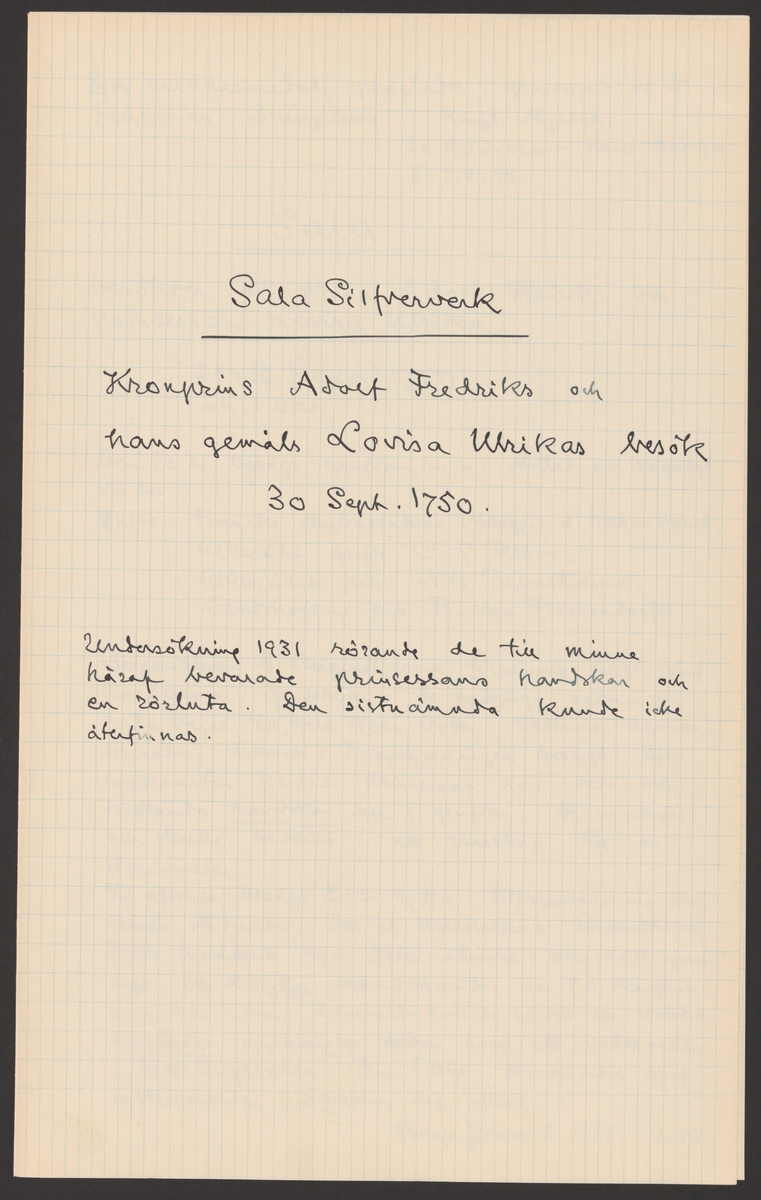 Sala Silfververk
Kronprins Adolf Fredriks och
hans gemåls Lovisa Ulrikas besök
30 Sept. 1750.
Undersökning 1931 rörande de till minne
häraf bevarade prinsessans handskar och
en rörluta. Den sistnämnda kunde icke
återfinnas.